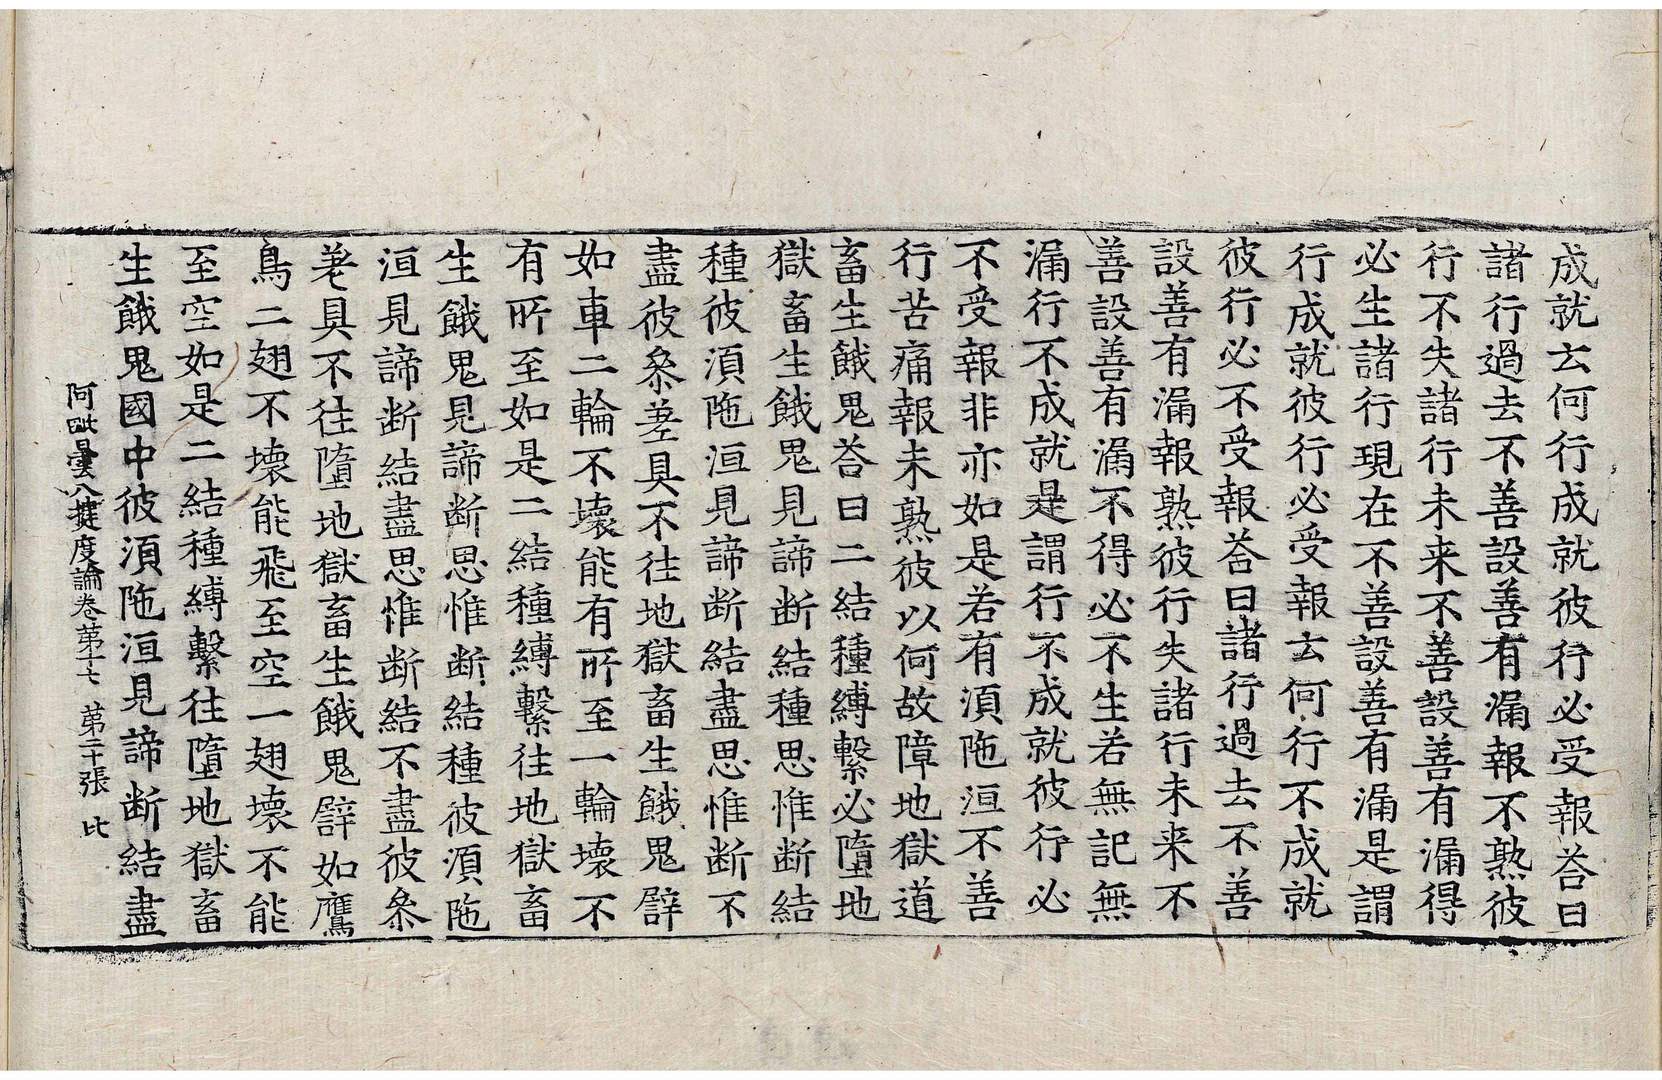 成就云何行成就彼行必受報荅曰
諸行過去不善設善有漏報不熟彼
行不失諸行未来不善設善有漏得
必生諸行現在不善設善有漏是謂
行成就彼行必受報云何行不成就
彼行必不受報荅曰諸行過去不善
設善有漏報熟彼行失諸行未来不
善設善有漏不得必不生若無記無
漏行不成就是謂行不成就彼行必
不受報非亦如是若有湏陁洹不善
行苦痛報未熟彼以何故障地獄道
畜生餓鬼荅曰二結種縛繫必墮地
獄畜生餓鬼見諦断結種思惟断結
種彼湏陁洹見諦断結盡思惟断不
盡彼叅差具不往地獄畜生餓鬼譬
如車二輪不壞能有所至一輪壞不
有所至如是二結種縛繫往地獄畜
生餓鬼見諦断思惟断結種彼湏陁
洹見諦断結盡思惟断結不盡彼叅
差具不往墮地獄畜生餓鬼譬如鷹
鳥二翅不壞能飛至空一翅壞不能
至空如是二結種縛繫往墮地獄畜
生餓鬼國中彼湏陁洹見諦断結盡
阿毗曇八揵度論卷第十七 第二十張 比